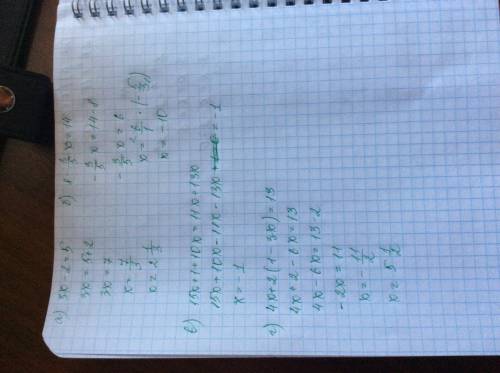 а) 3x-2=5
3x=5+2
3x=7
x=7/3
x=2 1/3
б) 8-3/5x=14
-3/5x=14-8
-3/5x=6
x=6/1·(-5/3)
x=-10
в) 15x+1+10x=11x+13x
15x+10x-11x-13x=-1
x=1
г) 4x+2(1 3x)=13
4x+2-6x=13
4x-6x=13-2
-2x=11
x=-11/2
x=5 1/2